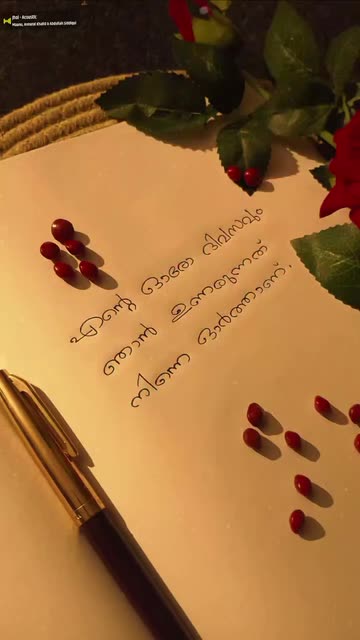 Jhol - Acoustic
Maanu, Annural Khalid & Abdullah Siddiqui
എന്റെ ഓരോ ദിവസവും
ഞാൻ ഉണരുന്നത്
നിന്നെ ഓർത്താണ്.